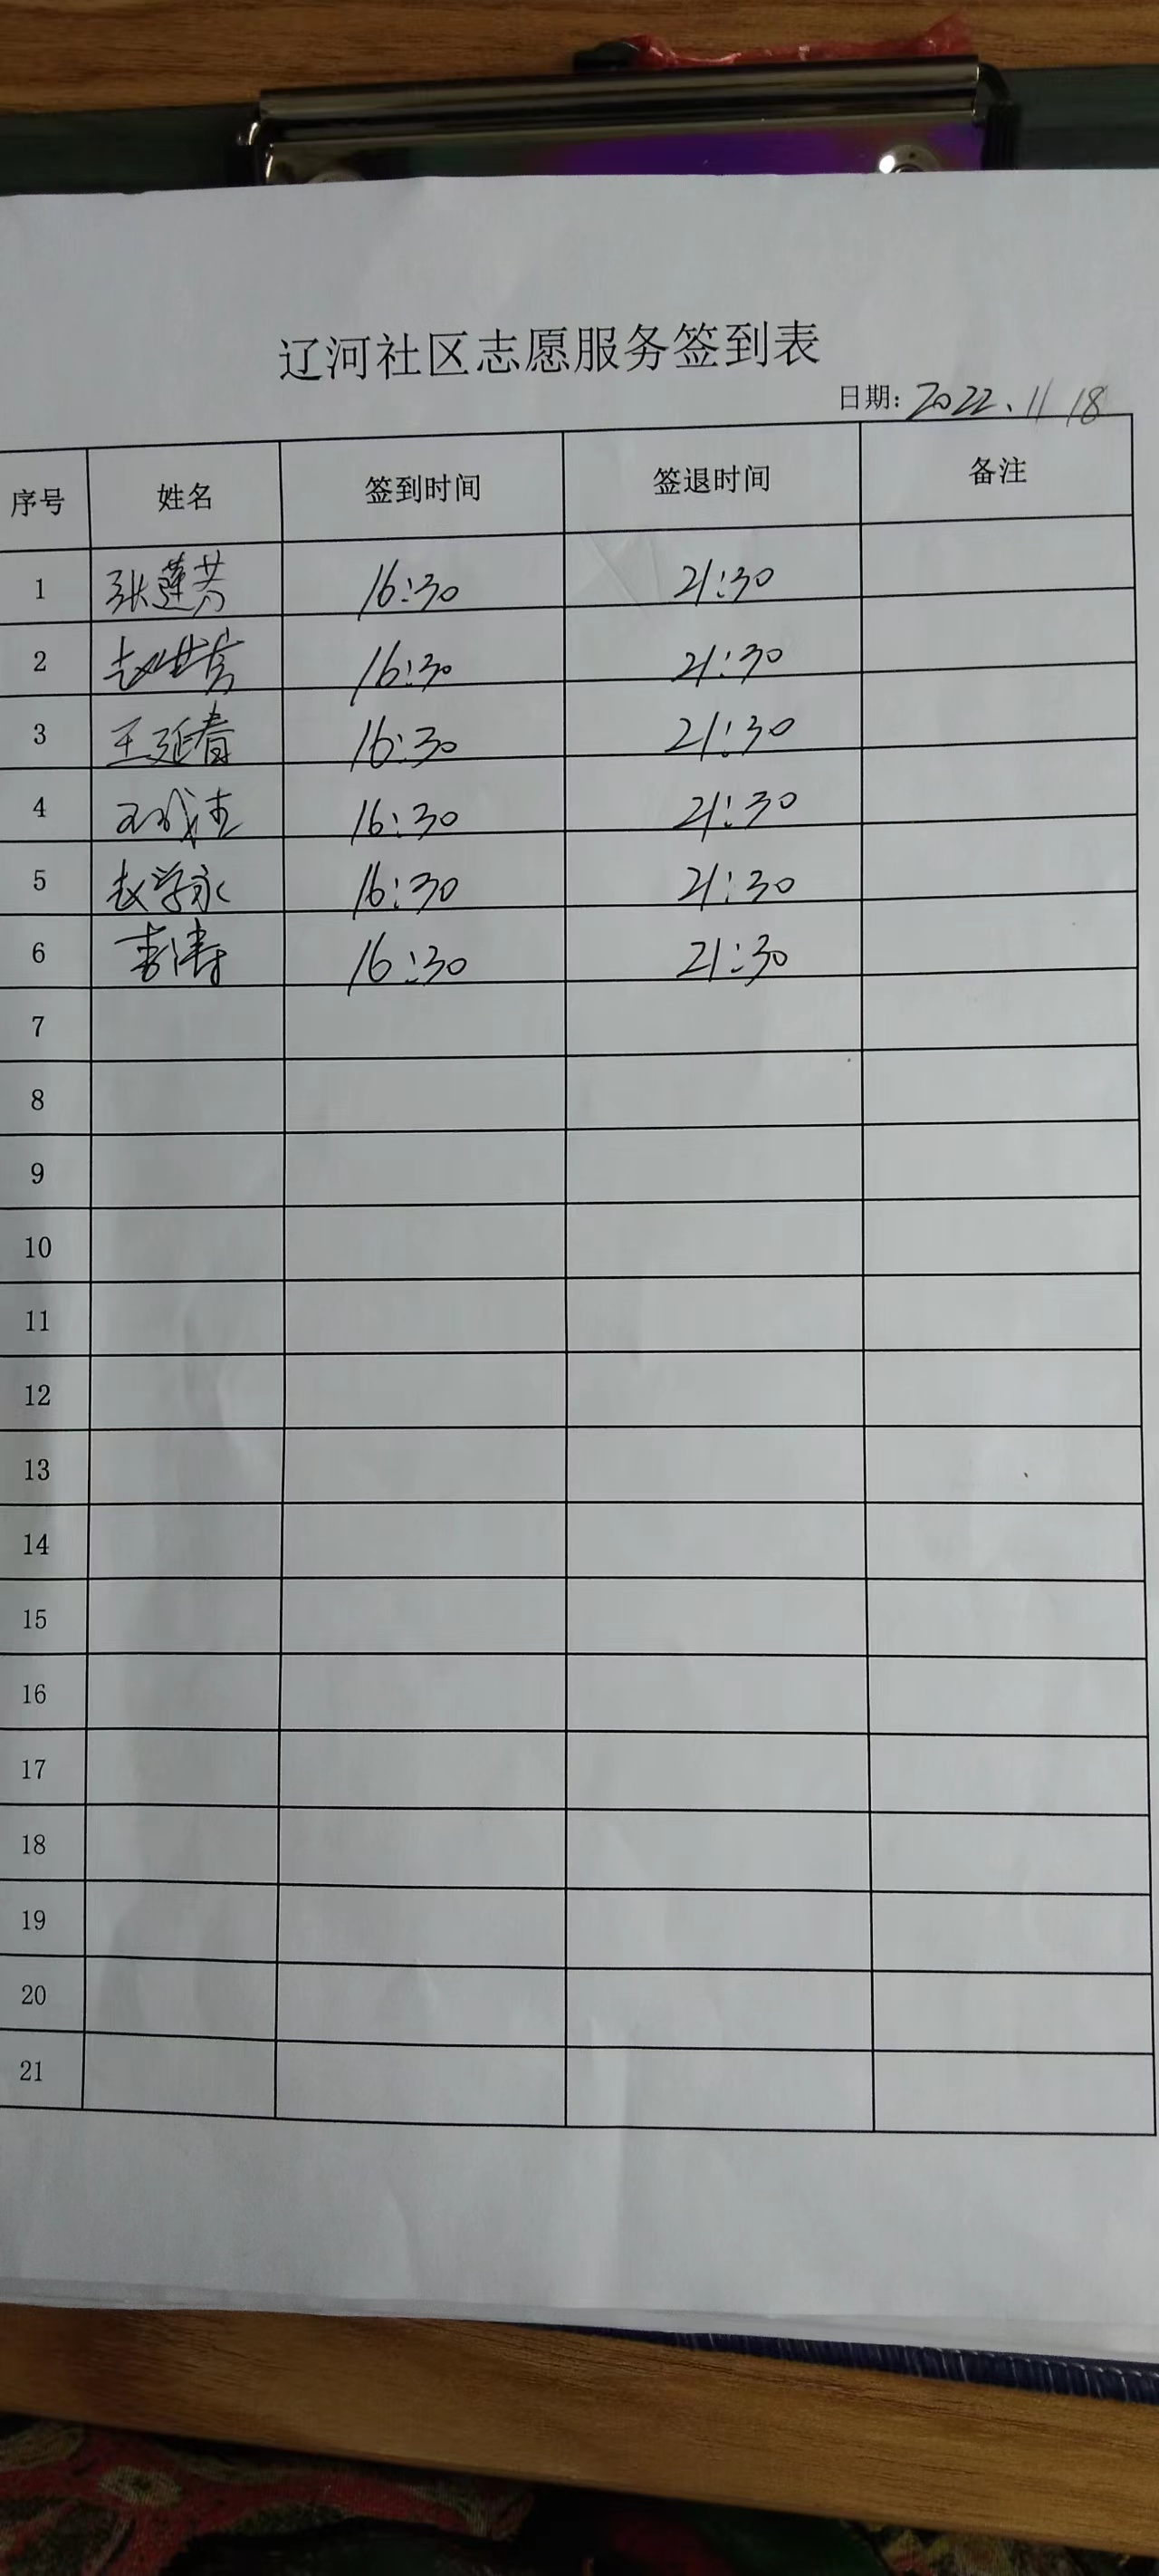 辽河社区志愿服务签到表
日期: 2022.11 18
序号 姓名 签到时间 签退时间 备注
1 张莲芳 16:30 21:30
2 赵 16:30 21:30
3 王延春 16:30 21:30
4 16:30 21:30
5 赵学永 16:30 21:30
6 李涛 16:30 21:30
7
8
9
10
11
12
13
14
15
16
17
18
19
20
21